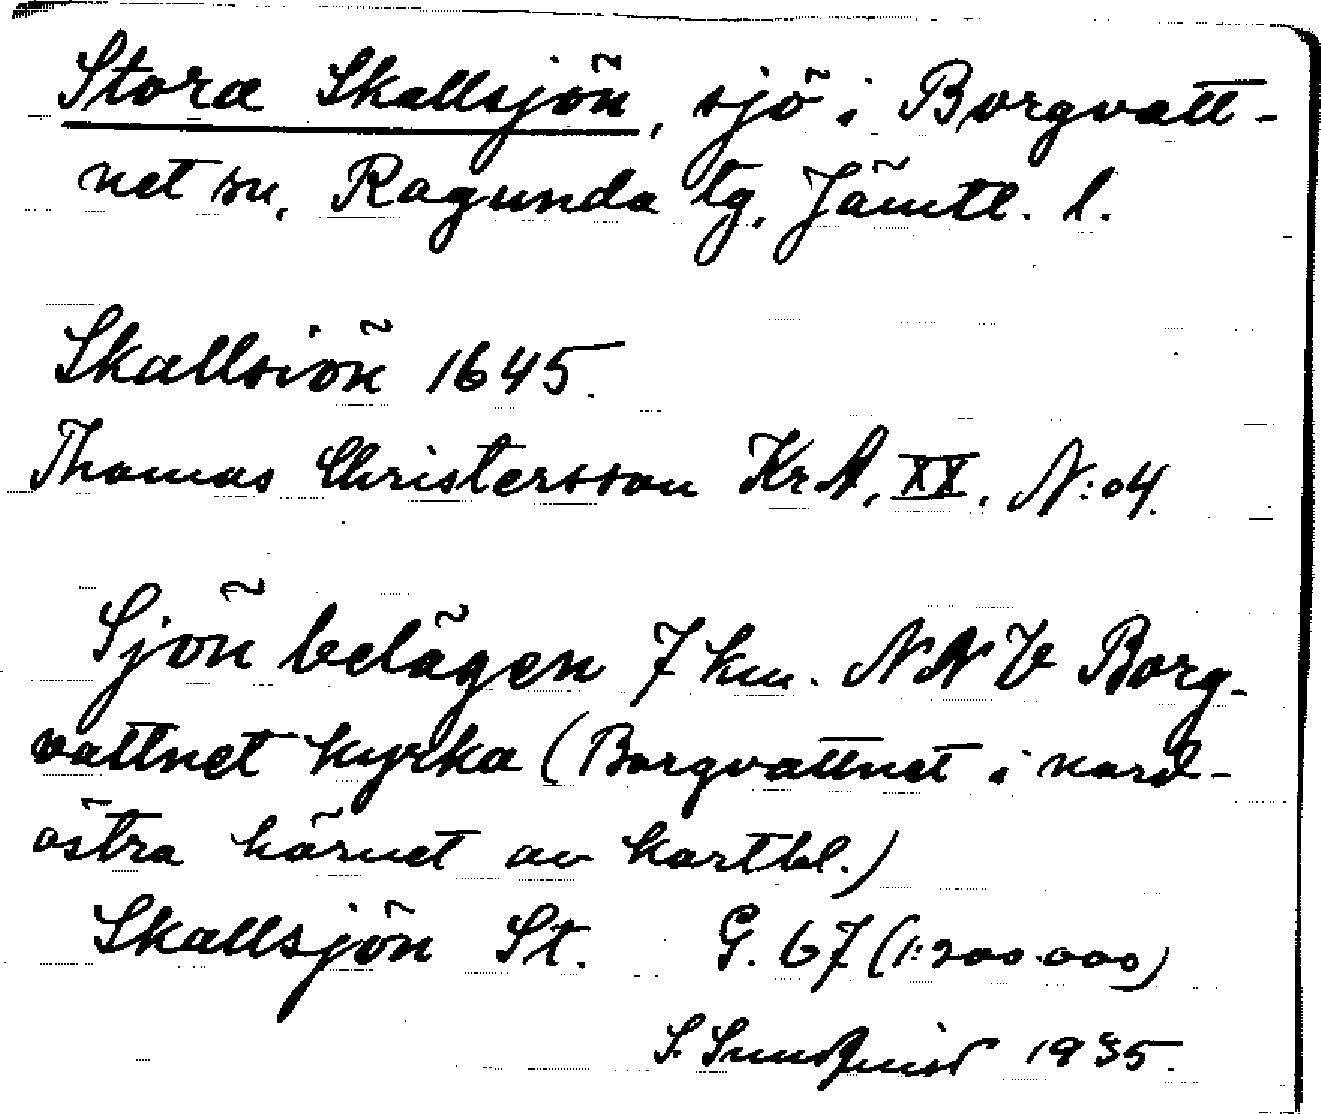 Stora Skallsjön, sjö i Borgvatt-
net sn, Ragunda tg, Jämtl. l.
Skallsiön 1645.
Thomas Christersson KrA, XX, N:o4.
Sjön belägen 7 km. NNV Borg-
vattnet kyrka (Borgvattnet i nord-
östra hörnet av kartbl.)
Skallsjön St. G. 67 (1:200.000)
S. Sundqvist 1935.